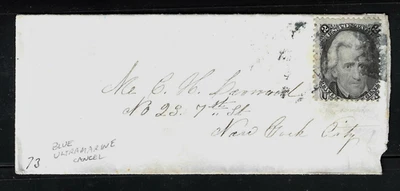 Mr. C. H.
No 23. 7th St
New York City
BLUE
ULTRAMARINE
CANCEL
73